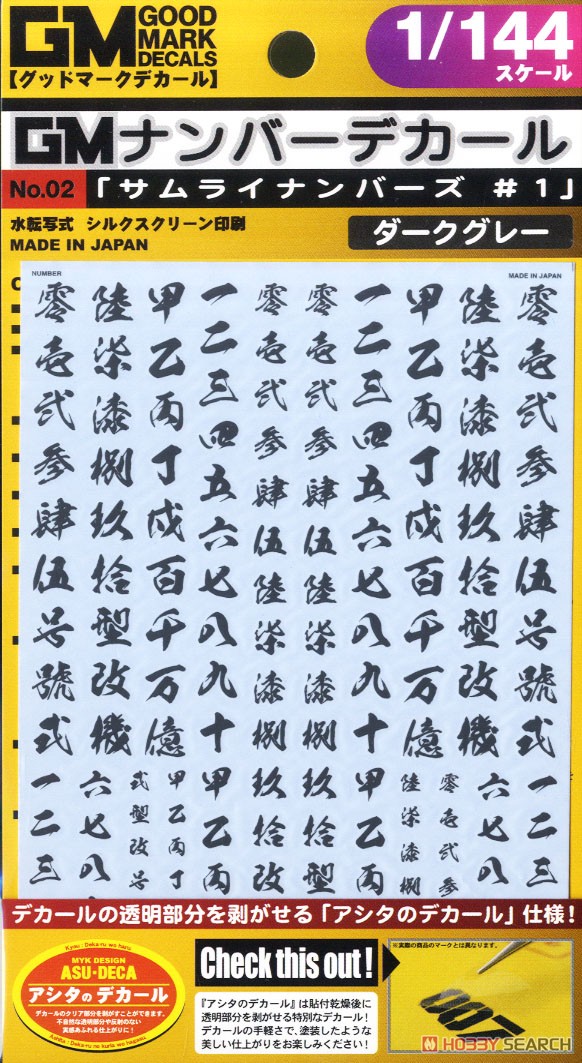 GM GOOD
MARK
DECALS
【グッドマークデカール】
1/144
スケール
GMナンバーデカール
No.02 「サムライナンバーズ #1」
水転写式 シルクスクリーン印刷
MADE IN JAPAN
ダークグレー
NUMBER
MADE IN JAPAN
零 陸 甲 一 零 零 一 甲 陸 零
壱 柒 乙 二 壱 壱 二 乙 柒 壱
弐 漆 丙 三 弐 弐 三 丙 漆 弐
参 捌 丁 四 参 参 四 丁 捌 参
肆 玖 戊 五 肆 肆 五 戊 玖 肆
伍 拾 百 六 伍 伍 六 百 拾 伍
号 型 千 七 陸 陸 七 千 型 号
號 改 万 八 柒 柒 八 万 改 號
式 機 億 九 漆 漆 九 億 機 式
十 捌 捌 十
一 六 式 甲 甲 玖 玖 甲 陸 零 六 一
二 七 型 乙 乙 拾 拾 乙 柒 壱 七 二
三 八 改 丙 丙 改 型 丙 漆 弐 八 三
号 丁 捌 参
デカールの透明部分を剥がせる「アシタのデカール」仕様!
MYK DESIGN
ASU・DECA
アシタのデカール
デカールのクリア部分を剥がすことができます。
不自然な透明部分や反射のない
実感あふれる仕上がりに!
Check this out!
『アシタのデカール』は貼付乾燥後に
透明部分を剥がせる特別なデカール!
デカールの手軽さで、塗装したような
美しい仕上がりをお楽しみください!
※実際の商品のマークとは異なります。
007
HOBBY SEARCH